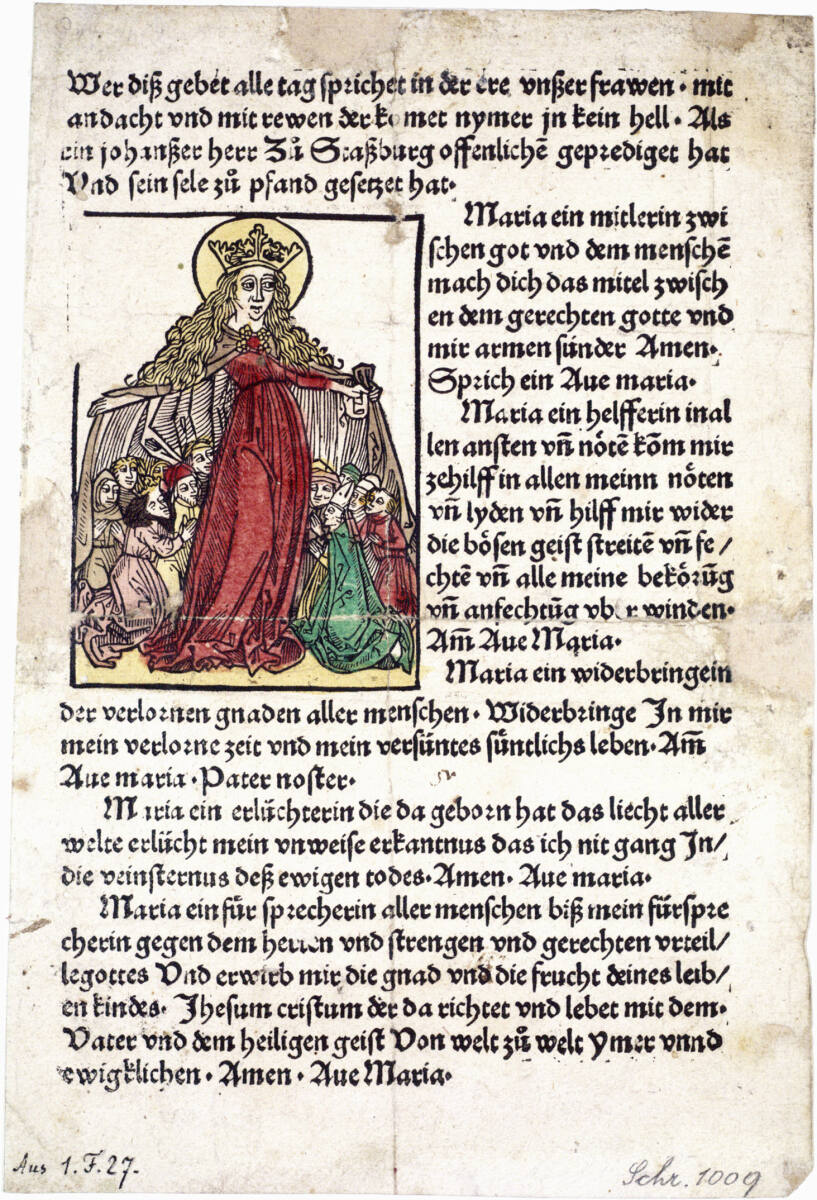 Wer diß gebet alle tag sprichet in der ere vnßer frawen · mit
andacht vnd mit rewen der komet nymer jn kein hell · Als
ein johanßer herr Zů Straßburg offenlichē geprediget hat
Vnd sein sele zů pfand gesetzet hat·
Maria ein mitlerin zwi
schen got vnd dem menschē
mach dich das mitel zwisch
en dem gerechten gotte vnd
mir armen sünder Amen·
Sprich ein Aue maria·
Maria ein helfferin inal
len ansten vn̄ nötē kōm mir
zehilff in allen meinn nöten
vn̄ lyden vn̄ hilff mir wider
die bösen geist streitē vn̄ fe/
chtē vn̄ alle meine bekörūg
vn̄ anfechtūg vber winden·
Am̄ Aue Maria·
Maria ein widerbringein
der verlornen gnaden aller menschen · Widerbringe In mir
mein verlorne zeit vnd mein versüntes süntlichs leben · Am̄
Aue maria · Pater noster·
Maria ein erlüchterin die da geborn hat das liecht aller
welte erlücht mein vnweise erkantnus das ich nit gang In/
die veinsternus deß ewigen todes · Amen · Aue maria·
Maria ein für sprecherin aller menschen biß mein fürspre
cherin gegen dem herren vnd strengen vnd gerechten vrteil/
legottes Vnd erwirb mir die gnad vnd die frucht deines leib/
en kindes · Jhesum cristum der da richtet vnd lebet mit dem·
Vater vnd dem heiligen geist Von welt zů welt ymer vnnd
ewigklichen · Amen · Aue Maria·
Aus 1. F. 27.
Schr. 1009